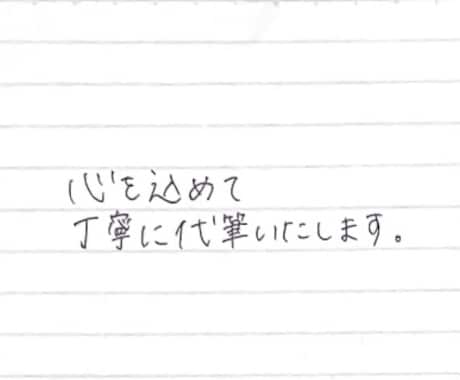 心を込めて
丁寧に代筆いたします。